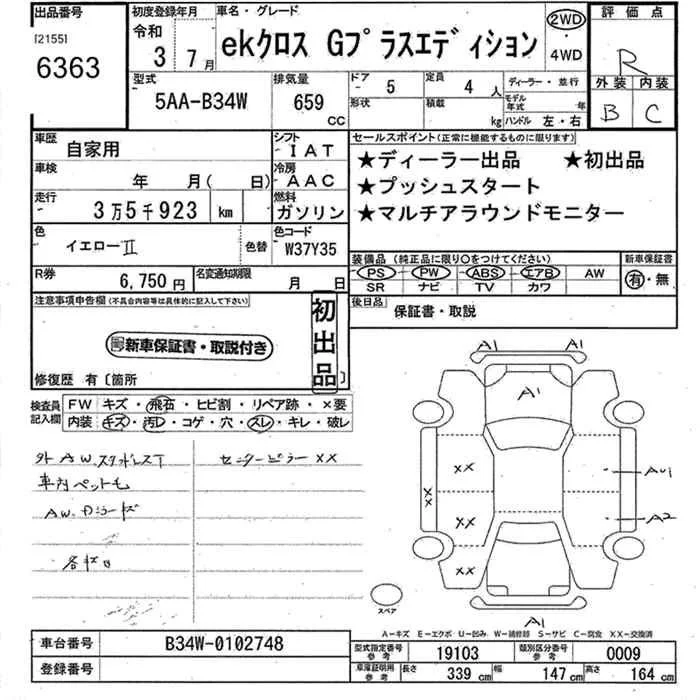 出品番号
[2155]
6363
初度登録年月
令和
3 7月
車名・グレード
ekクロス Gプラスエディション
2WD
・
4WD
評価点
R
外装 内装
B C
型式
5AA-B34W
排気量
659
CC
ドア 5
形状
定員 4 人
積載 kg
ディーラー・並行
モデル年式 年
ハンドル 左・右
車歴 自家用
シフト IAT
車検 年 月( 日)
冷房 AAC
走行 3万5千923 km
燃料 ガソリン
色 イエローⅡ 色替
色コード W37Y35
R券 6,750円
名変通知期限 月 日
セールスポイント(正常に機能するものに限ります)
★ディーラー出品 ★初出品
★プッシュスタート
★マルチアラウンドモニター
装備品 (純正品に限り○をつけてください)
PS PW ABS エアB AW
SR ナビ TV カワ
新車保証書
有・無
後日品
保証書・取説
注意事項申告欄(不具合内容等は具体的に記入して下さい)
新車保証書・取説付き
初出品
修復歴 有〔箇所 〕
検査員記入欄
FW キズ・飛石・ヒビ割・リペア跡・×要
内装 キズ・汚レ・コゲ・穴・スレ・キレ・破レ
外AW.スタッドレスT
センターピラーXX
車内ペット毛
AW.
A1 A1
A1
XX
XX
XX
XX
A2
A1
スペア
A-キズ E-エクボ U-凹み W-補修跡 S-サビ C-腐食 XX-交換済
車台番号 B34W-0102748
登録番号
型式指定番号 参考 19103
類別区分番号 参考 0009
車庫証明用 参考 長さ 339 cm 幅 147 cm 高さ 164 cm